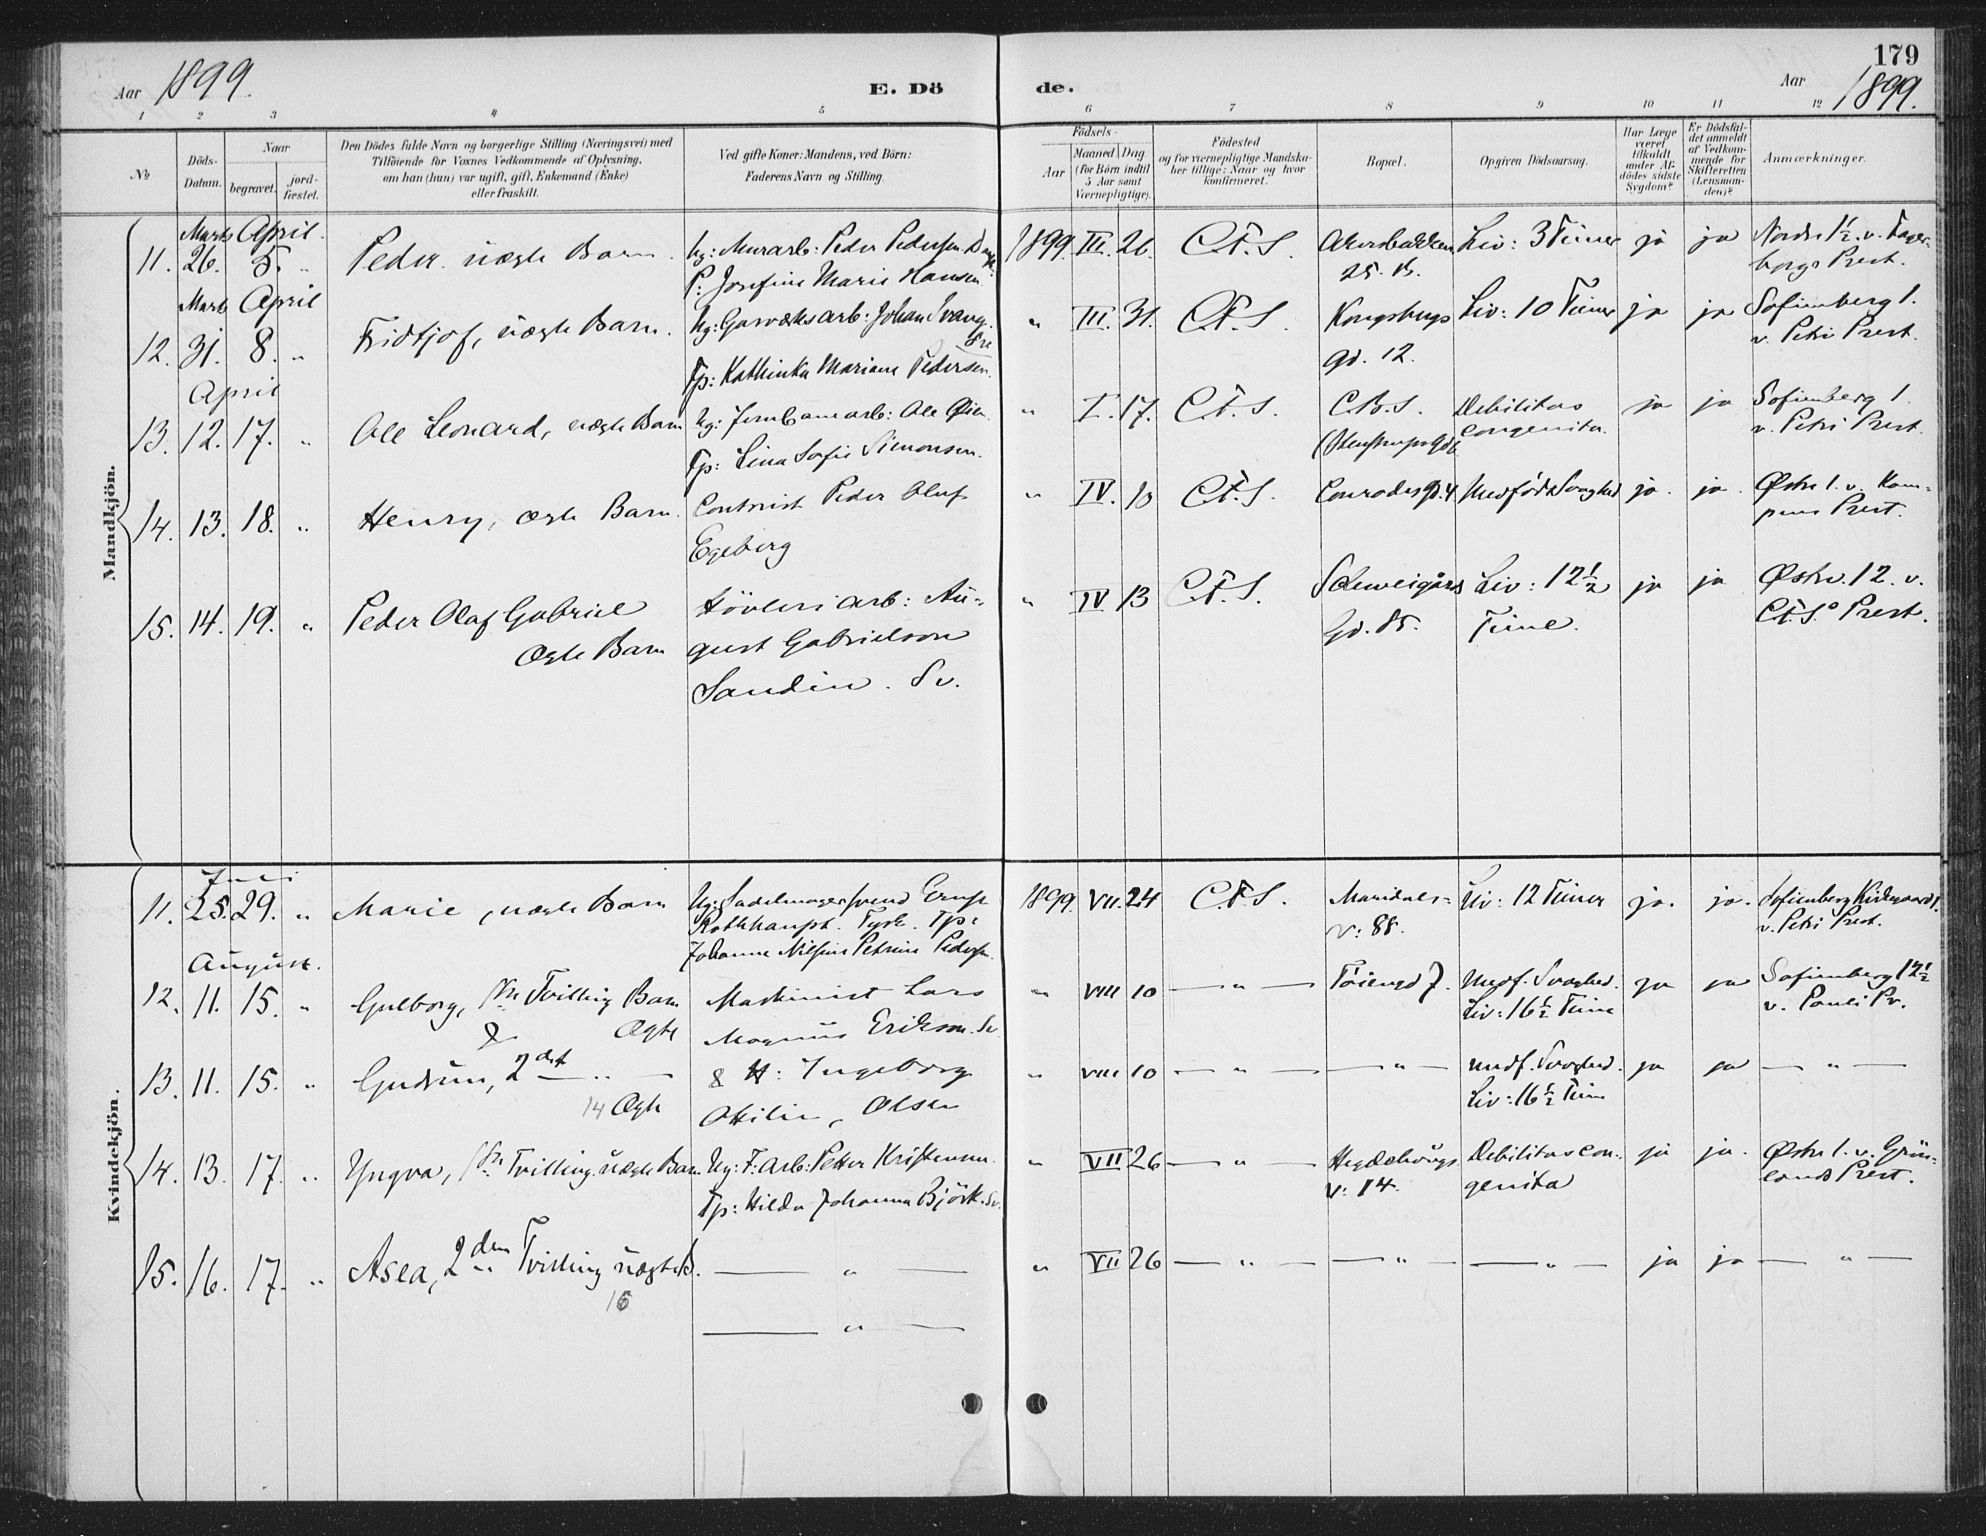 179
Aar 1899. E. Dö de. Aar 1899.
1 2 3 4 5 6 7 8 9 10 11 12
№
Döds-
Datum.
Naar
begravet. jord-
fæstet.
Den Dödes fulde Navn og borgerlige Stilling (Næringsvei) med
Tilföiende for Voxnes Vedkommende af Oplysning,
om han (hun) var ugift, gift, Enkemand (Enke)
eller fraskilt.
Ved gifte Koner: Mandens, ved Börn:
Faderens Navn og Stilling.
Födsels-
Aar Maaned Dag
(for Börn indtil
5 Aar samt
Værnepligtige).
Födested
og for værnepligtige Mandska-
ber tillige: Naar og hvor
konfirmeret.
Bopæl.
Opgiven Dödsaarsag.
Har Læge
været
tilkaldt
under Af-
dödes sidste
Sygdom?
Er Dödsfal-
det anmeldt
af Vedkom-
mende for
Skifteretten
(Lensman-
den)?
Anmærkninger.
Mandkjön.
Marts April
11. 26. 5. " Peder uægte Barn. Ug: Murarb: Peder Pedersen 1899 III. 26. C.F.S. Akersbakken Liv: 3 Timer ja ja Nordre 1½ v. Fager-
P: Josefine Marie Hansen 25. B. borgs Prest.
Marts April
12. 31. 8. " Fridtjof, uægte Barn. Ug: Gasværksarb: Johan " III. 31. C.F.S. Kongsbergs Liv: 10 Timer ja ja Sofienberg 1.
Fp: Kathinka Mariane Pedersen. gd. 12. v. Petri Prest.
April
13. 12. 17. " Ole Leonard, uægte Barn Ug: Jernbanearb: Ole Øien " I. 17. C.F.S. C.B.S. Debilitas ja ja Sofienberg 1.
Fp: Lina Sofie Simonsen. congenita. v. Petri Prest.
14. 13. 18. " Henry, ægte Barn. Contorist Peder Oluf " IV. 10 C.F.S. Conradisgd. 4 Medfødt Svaghed ja. ja. Østre 1. v. Kam-
Egeberg pens Prest.
15. 14. 19. " Peder Olaf Gabriel Høvleriarb: Au- " IV 13 C.F.S. Schweigårds Liv: 12½ ja ja Østre. 12. v.
Ægte Barn gust Gabrielson gd. 85. Time. C.F.S. Prest.
Sandin. Sv.
Kvindekjön.
Juli
11. 25. 29. " Marie, uægte Barn Ug: Sadelmagersvend Ernst 1899. VII. 24 C.F.S. Maridals- Liv: 12 Timer ja. ja. Sofienberg Kirkegaard 1.
Rothhaupt. Tysk. Fp: v: 88. v. Petri Prest.
Johanne Petrine Peders.
August.
12. 11. 15. " Gulborg, 1ste Tvilling Barn Maskinist Lars " VIII 10 — " — Töiengd 7. Medf. Svaghed. ja ja Sofienberg 12½
& Ægte Magnus Erikson. Sv Liv: 16½ Time v. Pauli Pr.
13. 11. 15. " Gudrun, 2det — " — & H: Ingeborg " VIII 10 — " — — " — medf. Svaghed. ja ja — " —
14 Ægte Otilie, Olsen Liv: 16½ Time
14. 13. 17. " Yngva, 1ste Tvilling. uægte Barn Ug: F: arb: Petter Kristensen. " VII 26 — " — Hegdehaugs Debilitas con- ja ja. Østre 1. v. Grøn-
Fp: Hilda Johanna Björk. Sv. v: 14. genita lands Prest.
15. 16. 17. " Asea, 2den Tvilling uægte B. — " — " VII 26 — " — — " — — " — ja ja — " —
16
— " —